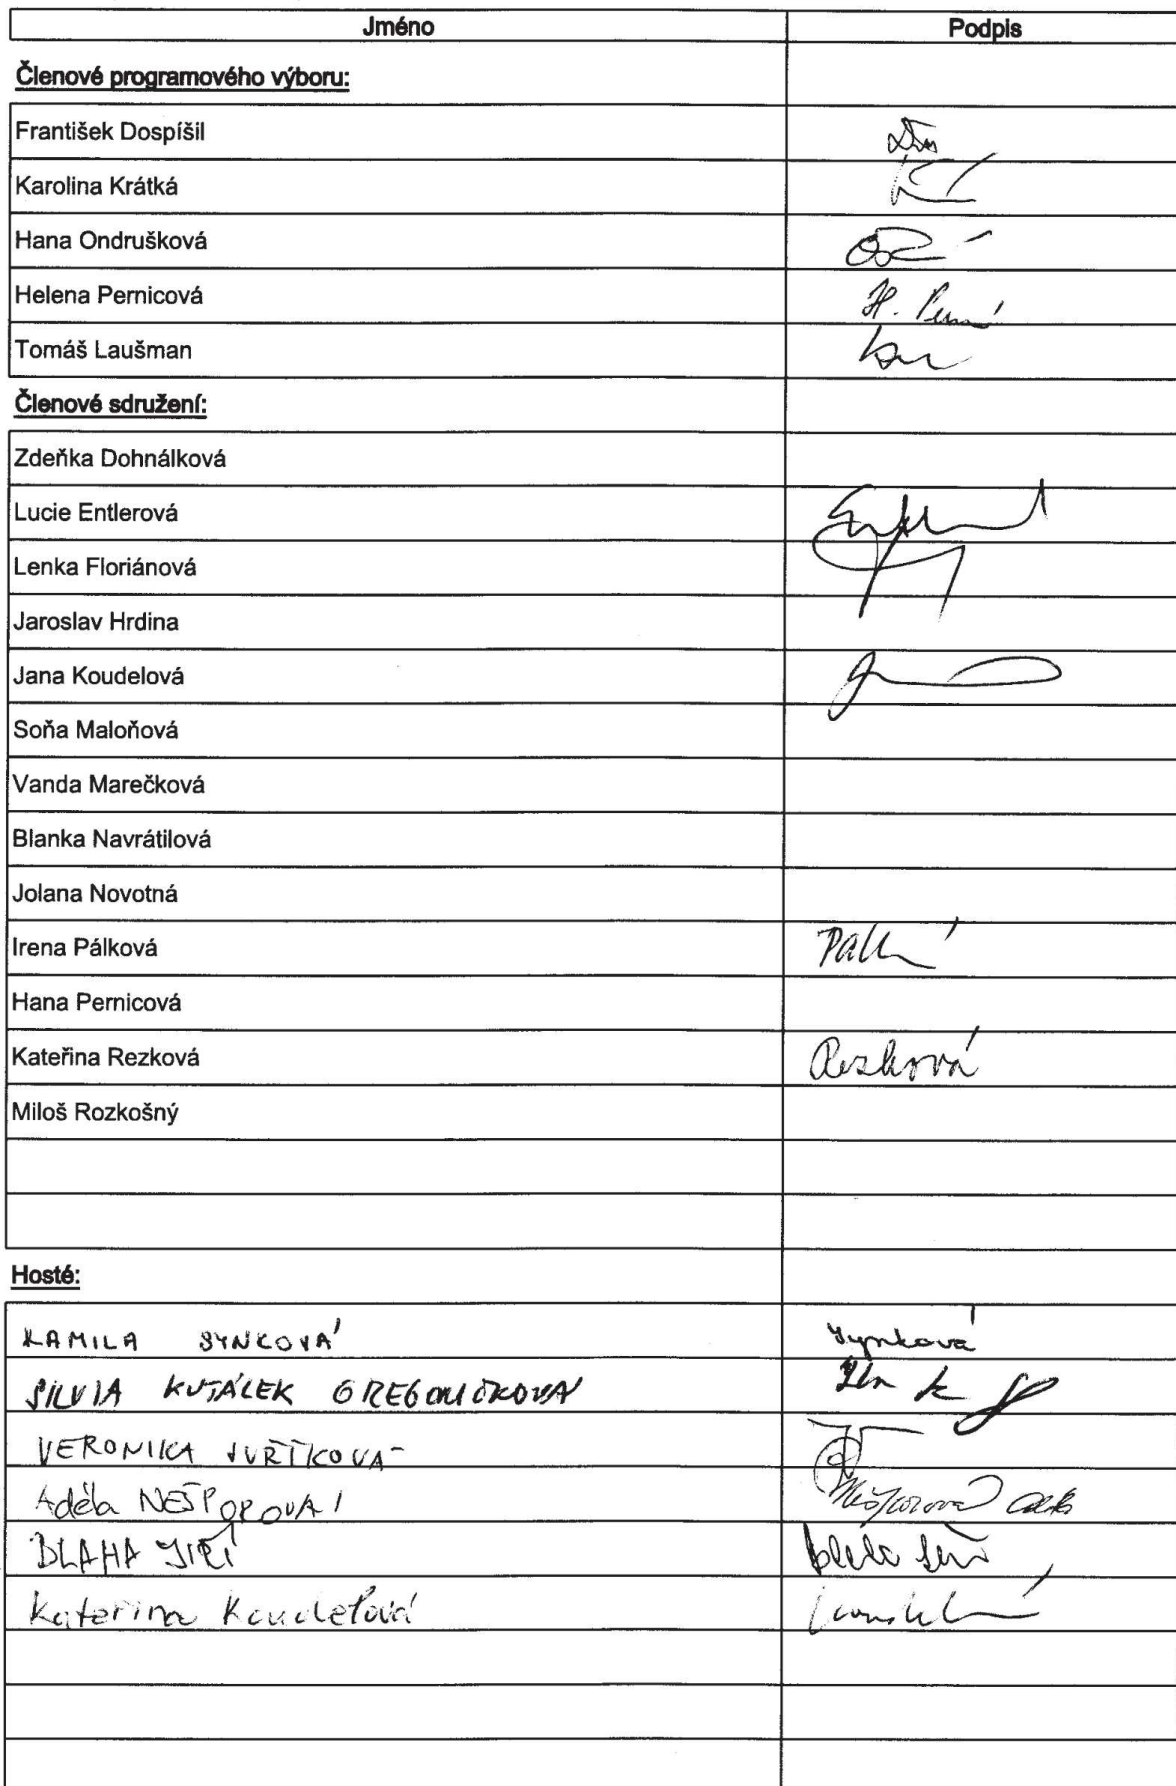 Jméno Podpis
Členové programového výboru:
František Dospíšil
Karolina Krátká
Hana Ondrušková
Helena Pernicová H.
Tomáš Laušman
Členové sdružení:
Zdeňka Dohnálková
Lucie Entlerová
Lenka Floriánová
Jaroslav Hrdina
Jana Koudelová
Soňa Maloňová
Vanda Marečková
Blanka Navrátilová
Jolana Novotná
Irena Pálková
Hana Pernicová
Kateřina Rezková Rezková
Miloš Rozkošný
Hosté:
KAMILA SYNKOVÁ Synková
SILVIA KUTÁLEK
VERONIKA
Adéla NEŠPOROVÁ Nešporová
BLAHA JIŘÍ
Kateřina Koudelová